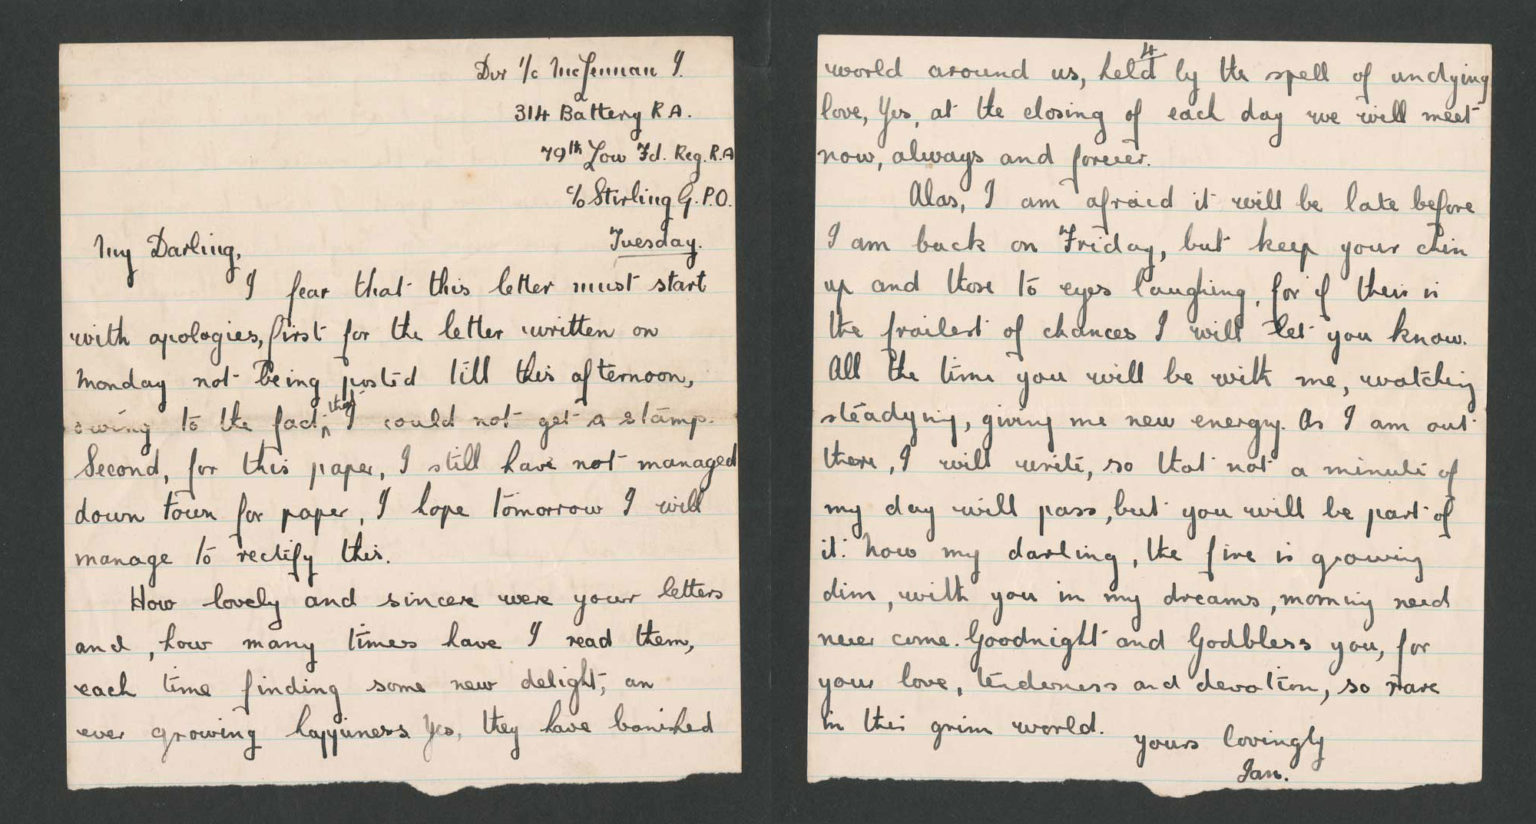 Dvr i/c McLennan I.
314 Battery R.A.
79th Low Fd. Reg. R.A
c/o Stirling G.P.O.
Tuesday.
My Darling,
I fear that this letter must start
with apologies, first for the letter written on
Monday not being posted till this afternoon,
owing to the fact, that I could not get a stamp.
Second, for this paper, I still have not managed
down town for paper, I hope tomorrow I will
manage to rectify this.
How lovely and sincere were your letters
and, how many times have I read them,
each time finding some new delight, an
ever growing happiness. Yes, they have banished
4
world around us, held by the spell of undying
love, Yes, at the closing of each day we will meet
now, always and forever.
Alas, I am afraid it will be late before
I am back on Friday, but keep your chin
up and those to eyes laughing, for if their is
the frailest of chances I will let you know.
All the time you will be with me, watching
steadying, giving me new energy. As I am out
there, I will write, so that not a minute of
my day will pass, but you will be part of
it. Now my darling, the fire is growing
dim, with you in my dreams, morning need
never come. Goodnight and Godbless you, for
your love, tenderness and devotion, so rare
in this grim world.
Yours lovingly
Ian.